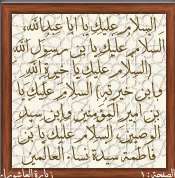 السلام عليك يا أبا عبدالله،
السلام عليك يا بن رسول الله
(السلام عليك يا خيرة الله
وابن خيرته) السلام عليك يا
بن أمير المؤمنين وابن سيد
الوصيين، السلام عليك يا بن
فاطمة سيدة نساء العالمين
الصفحة: ١
زيارة العاشوراء